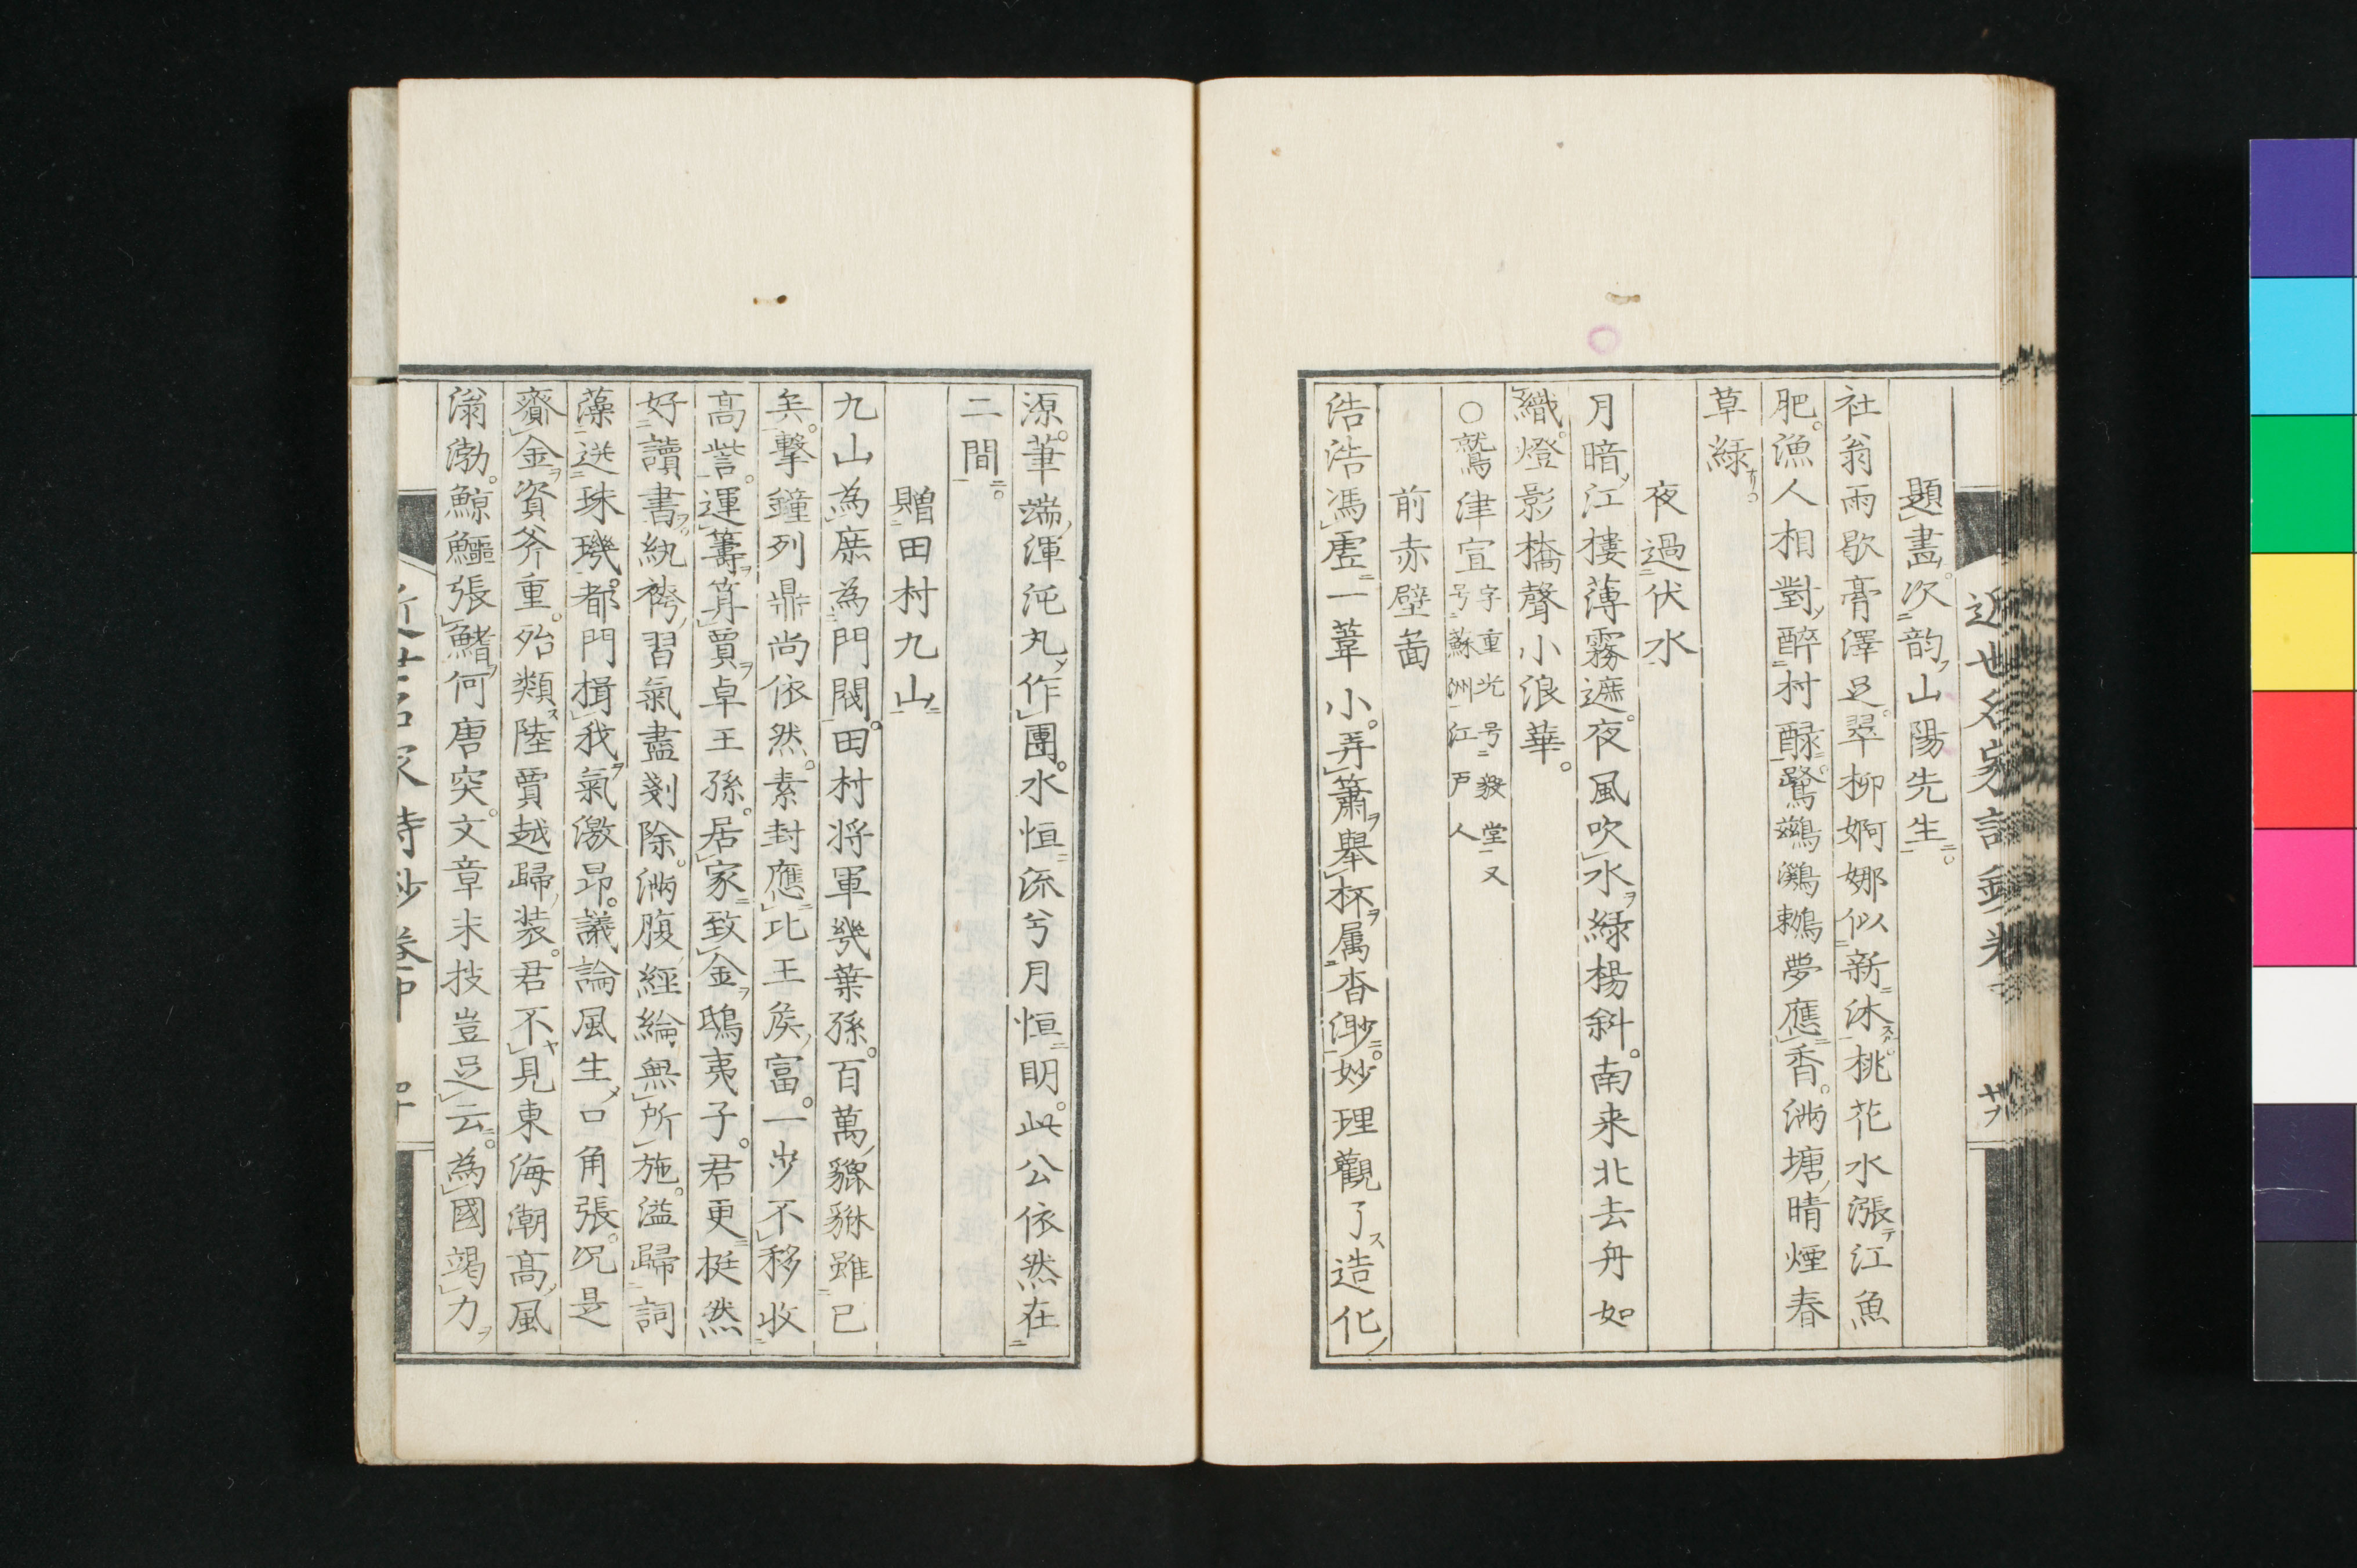 題畫次韵山陽先生
社翁雨歇膏澤足翠柳婀娜似新沐桃花水漲江魚
肥漁人相對醉村醁鷺鷀鸂鶒夢應香満塘晴煙春
草緑
夜過伏水
月暗江摟薄霧遮夜風吹水緑楊斜南来北去舟如
織燈影槗聲小浪華
○鷲津宣字重光号毅堂又
号蘇洲江戸人
前赤壁啚
浩浩馮虗一葦小弄簫舉杯属杳渺妙理觀了造化
源筆端渾沌丸作團水恒流兮月恒明此公依然在
二間
贈田村九山
九山為庶為門閥田村将軍幾葉孫百萬貔貅雖已
矣擊鐘列鼎尚依然素封應比王矦富一步不移收
高訾運籌算賈卓王孫居家致金鴟夷子君更挺然
好讀書紈袴習氣盡剗除満腹經綸無所施溢歸詞
藻逬珠璣都門揖我氣激昂議論風生口角張况是
齎金資斧重殆類陸賈越歸装君不見東海潮高風
滃渤鯨鱷張鰭何唐突文章末技豈足云為國竭力
近世名家詩鈔